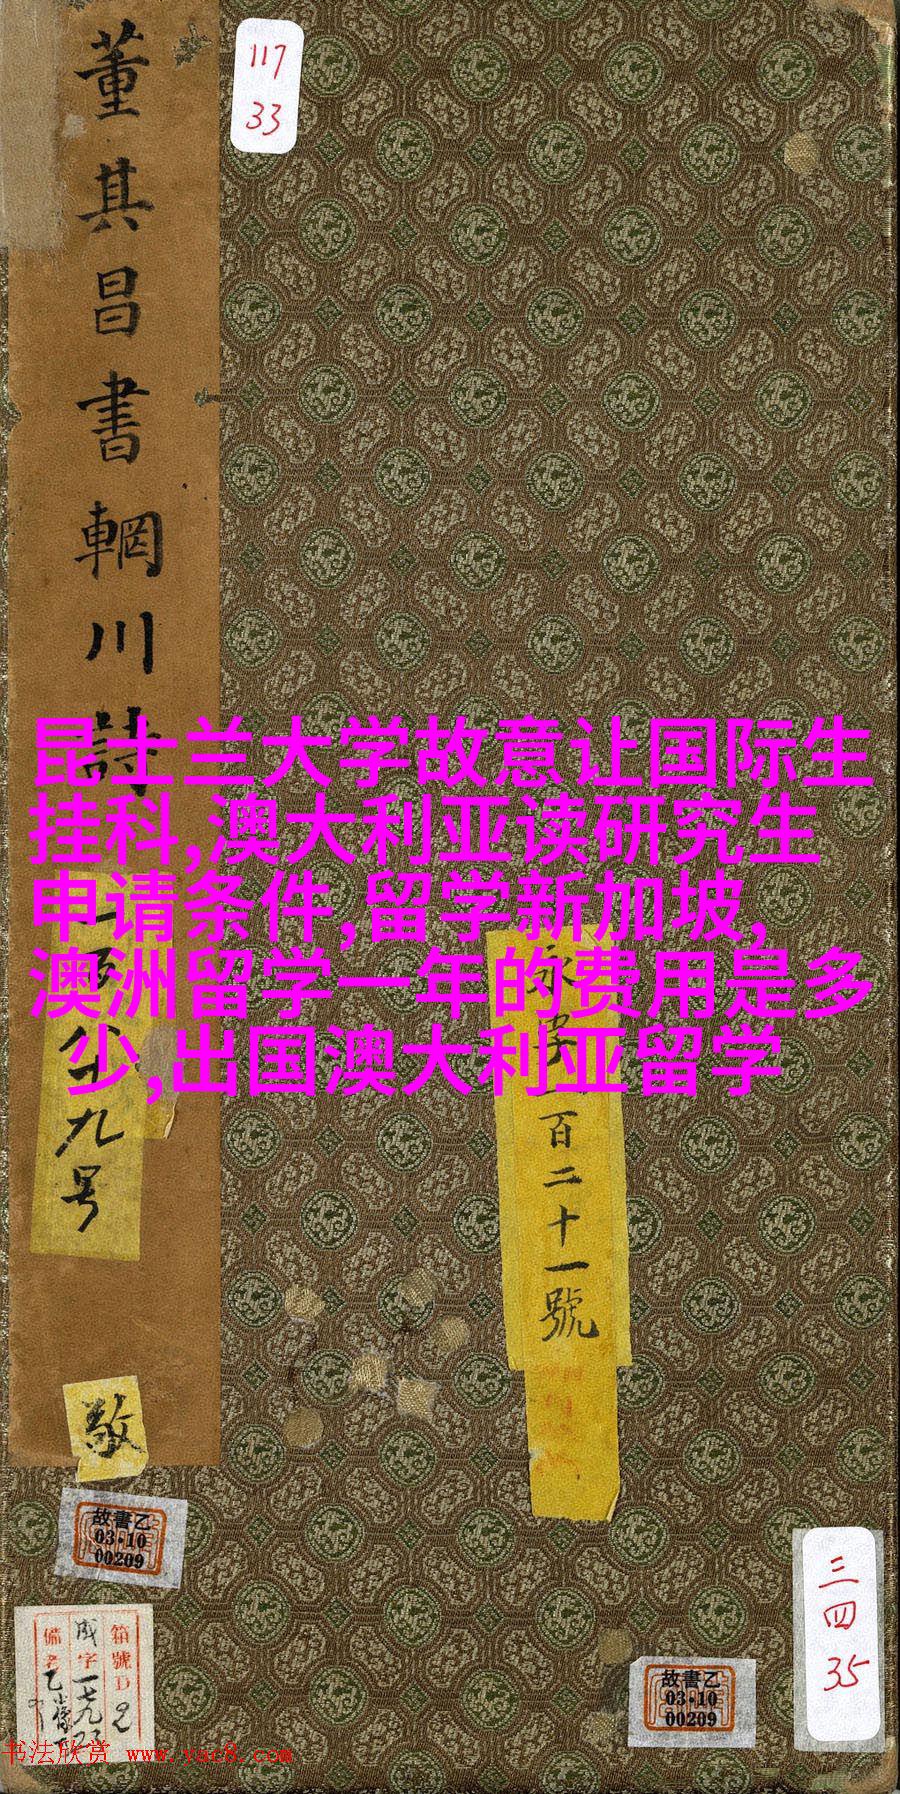 董其昌書輞川詩
117
33
昆士兰大学故意让国际生
挂科,澳大利亚读研究生
申请条件,留学新加坡,
澳洲留学一年的费用是多
少,出国澳大利亚留学
九号
百二十一號
敬
故書乙
03·10
00209
箱號D2
成字一七九
備考
三四
35
故書乙
03·10
00209
书法欣赏 www.yac8.com